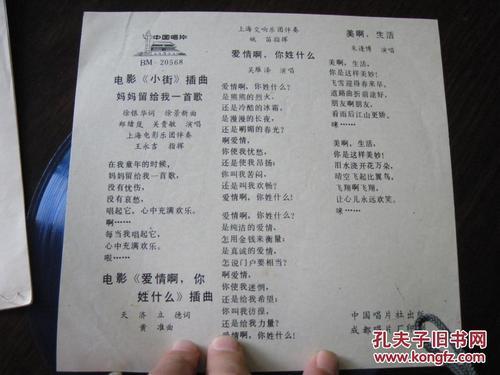 中国唱片
BM-20568
电影《小街》插曲
妈妈留给我一首歌
徐银华词 徐景新曲
郑绪岚 吴青敏 演唱
上海电影乐团伴奏
王永吉 指挥
在我童年的时候,
妈妈留给我一首歌,
没有忧伤,
没有哀愁,
唱起它,心中充满欢乐。
啊……
每当我唱起它,
心中充满欢乐。
啦……
电影《爱情啊,你
姓什么》插曲
天 济 立 德词
黄 准曲
上海交响乐团伴奏
姚 笛指挥
爱情啊,你姓什么
吴雁泽 演唱
爱情啊,你姓什么?
是熊熊的烈火,
还是冷酷的冰霜,
是漫漫的长夜,
还是明媚的春光?
啊爱情,
你使我忧愁,
还是使我昂扬;
你叫我苦闷,
还是叫我欢畅?
爱情啊,你姓什么!
爱情啊,你姓什么?
是纯洁的爱情,
怎用金钱来衡量;
是真诚的爱情,
怎说门户要相当?
啊爱情,
你使我迷惘,
还是给我希望;
你叫我彷徨,
还是给我力量?
爱情啊,你姓什么!
美啊,生活
朱逢博 演唱
美啊,生活,
你是这样美妙!
飞雪迎得春来早,
道路曲折前途好,
朋友啊朋友,
看雨后江山更娇。
咪……
美啊,生活,
你是这样美妙!
旧水浇开花万朵,
晴空飞起比翼鸟,
飞翔啊飞翔,
让心儿永远欢笑。
咪……
中国唱片社出版
成都唱片厂印
孔夫子旧书网
www.kongfz.com